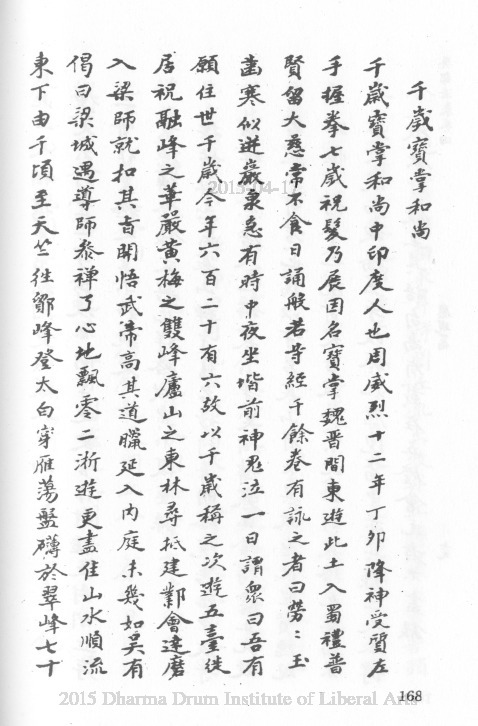 千歲寶掌和尚
千歲寶掌和尚中印度人也周威烈十二年丁卯降神受質左
手握拳七歲祝髮乃展因名寶掌魏晉間東遊此土入蜀禮普
賢留大慈常不食日誦般若等經千餘卷有詠之者曰勞〻玉
齒寒似迸巖泉急有時中夜坐堦前神鬼泣一日謂眾曰吾有
願住世千歲今年六百二十有六故以千歲稱之次遊五臺徙
居祝融峰之華嚴黃梅之雙峰廬山之東林尋抵建鄴會達磨
入梁師就扣其旨開悟武帝高其道臘延入內庭未幾如吳有
偈曰梁城遇導師叅禪了心地飄零二浙遊更盡佳山水順流
東下由千頃至天竺往鄮峰登太白穿雁蕩盤礴於翠峰七十
168
2015 Dharma Drum Institute of Liberal Arts